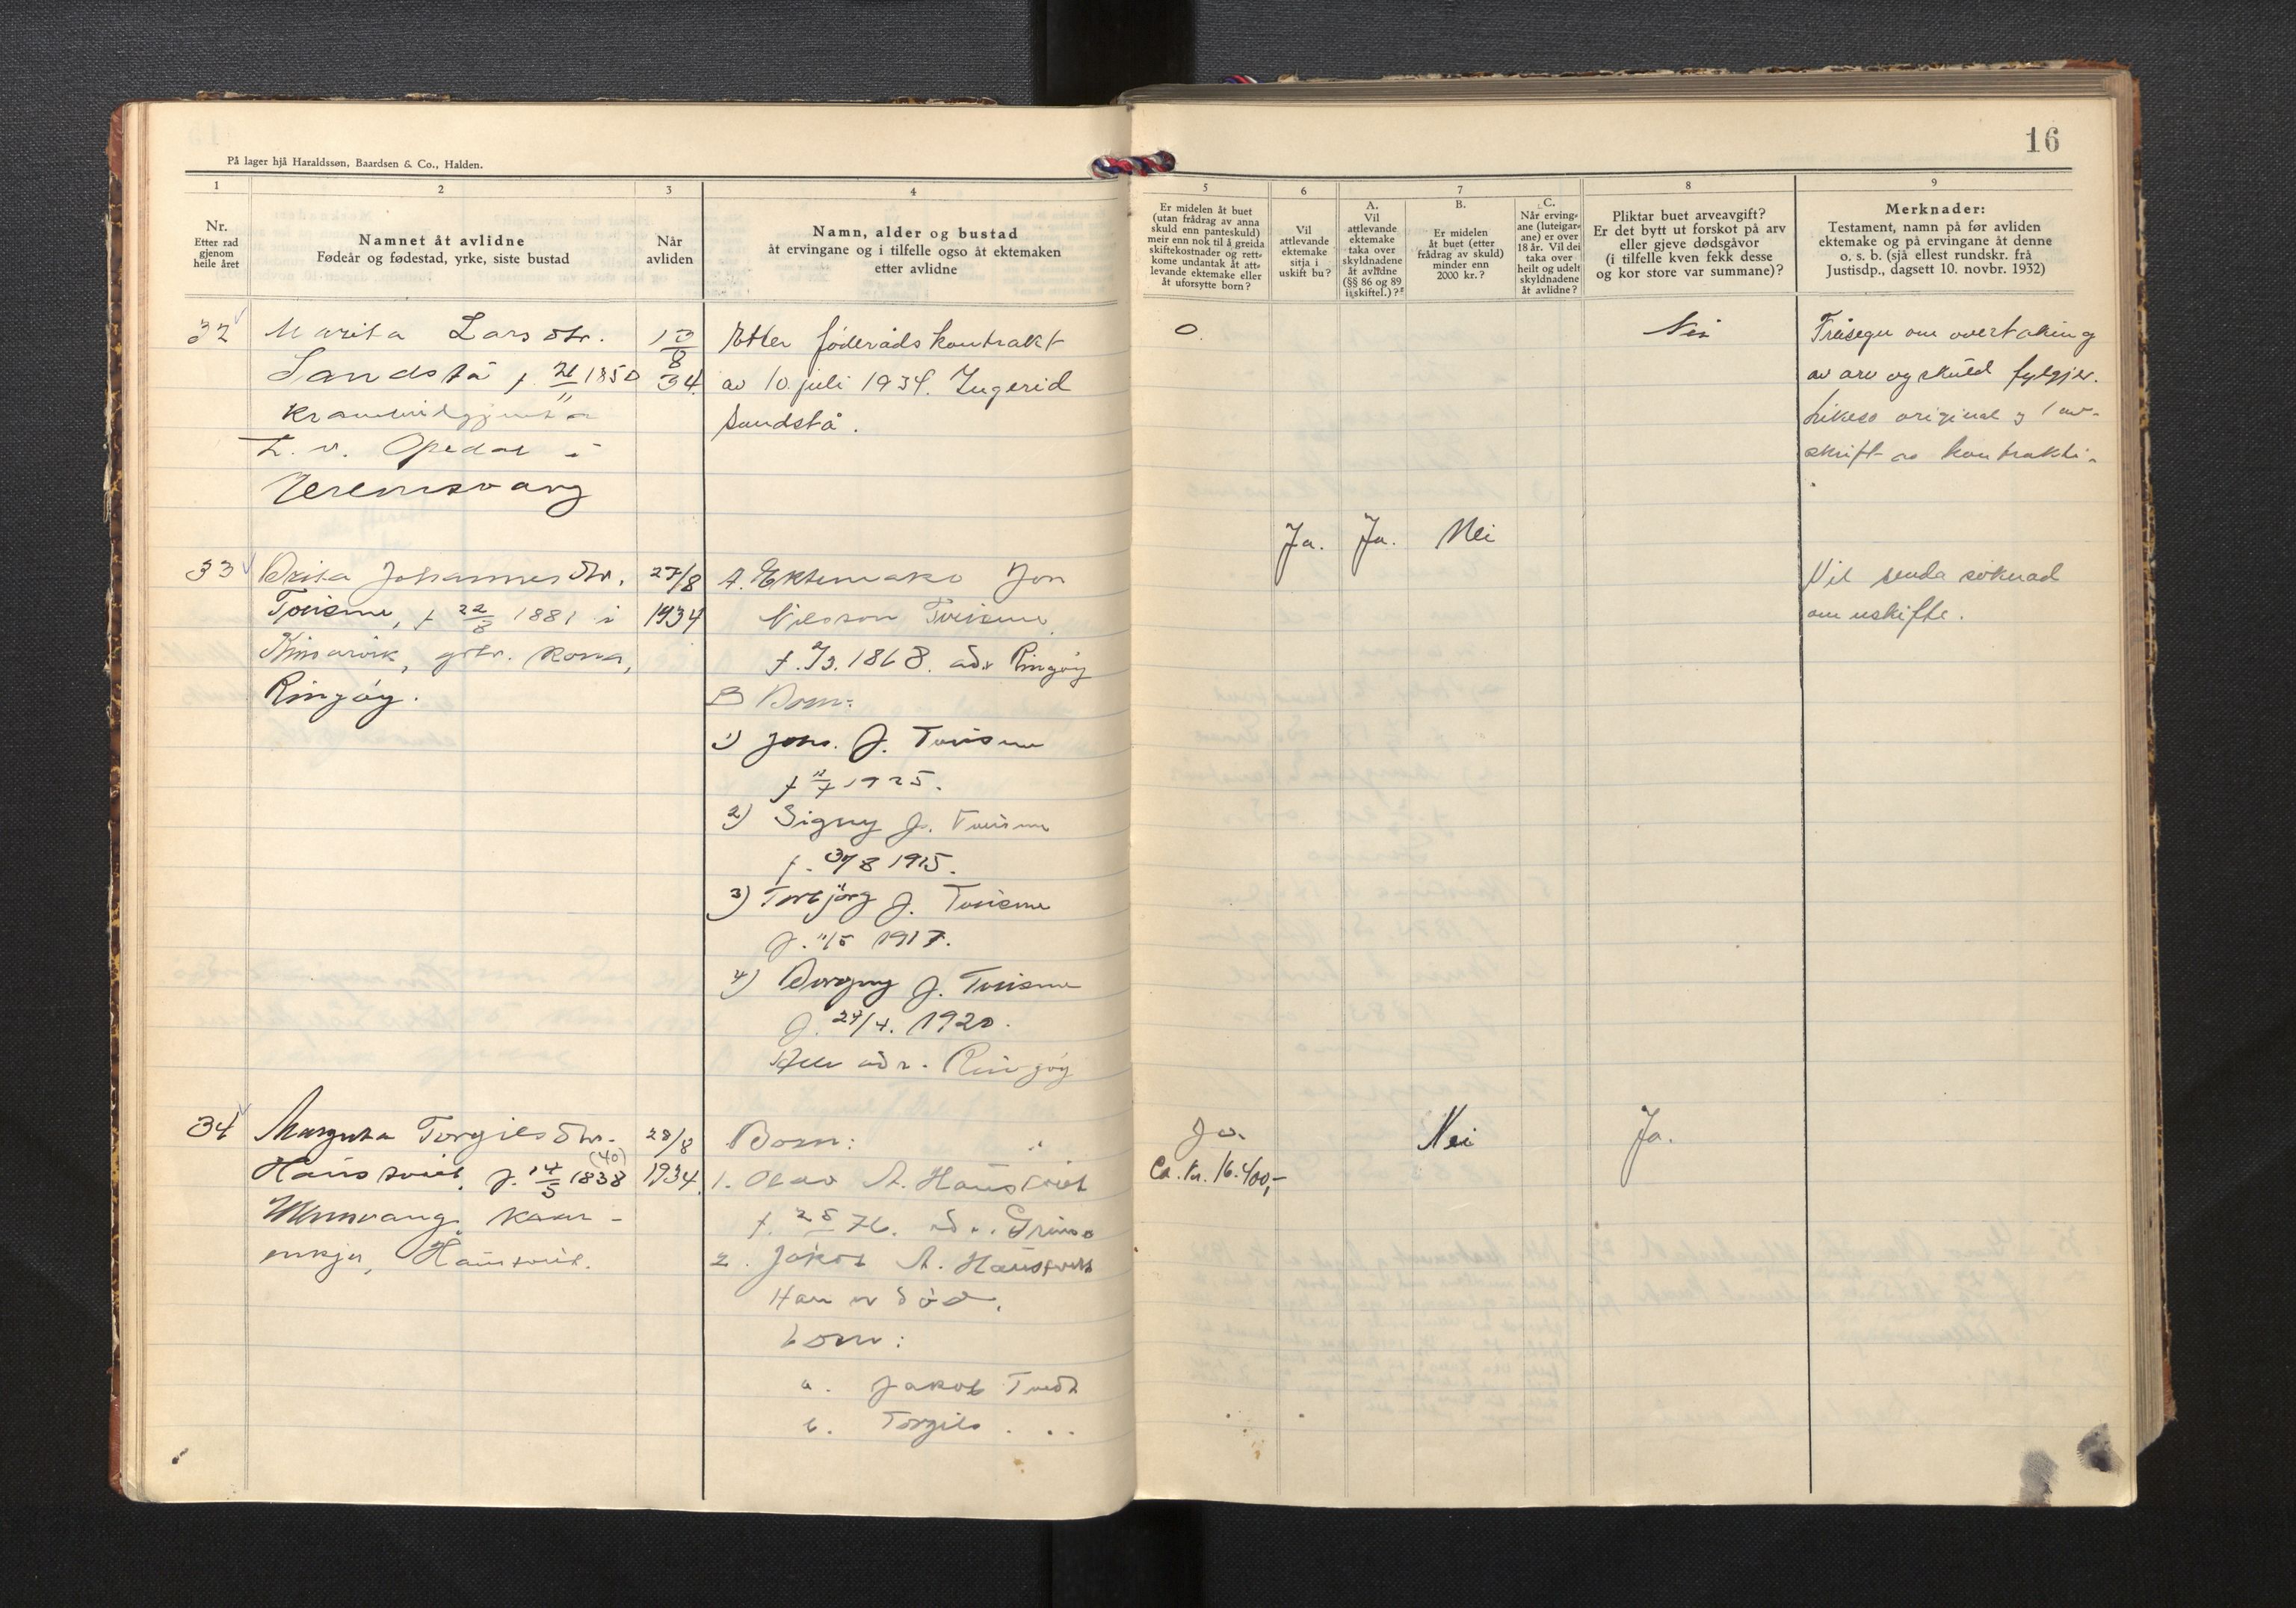 16
På lager hjå Haraldssøn, Baardsen & Co., Halden.
1
2
3
4
5
6
7
8
9
Nr.
Etter rad
gjenom
heile året
Namnet åt avlidne
Fødeår og fødestad, yrke, siste bustad
Når
avliden
Namn, alder og bustad
åt ervingane og i tilfelle ogso åt ektemaken
etter avlidne
Er midelen åt buet
(utan frådrag av anna
skuld enn panteskuld)
meir enn nok til å greida
skiftekostnader og rett-
kome undantak åt att-
levande ektemake eller
åt uforsytte born?
Vil
attlevande
ektemake
sitja i
uskift bu?
A.
Vil
attlevande
ektemake
taka over
skyldnadene
åt avlidne
(§§ 86 og 89
i skiftel.)?
B.
Er midelen
åt buet (etter
frådrag av skuld)
minder enn
2000 kr.?
C.
Når erving-
ane (luteigar-
ane) er over
18 år. Vil dei
taka over
heilt og udelt
skyldnadene
åt avlidne?
Pliktar buet arveavgift?
Er det bytt ut forskot på arv
eller gjeve dødsgåvor
(i tilfelle kven fekk desse
og kor store var summane)?
Merknader:
Testament, namn på før avliden
ektemake og på ervingane åt denne
o. s. b. (sjå ellest rundskr. frå
Justisdp., dagsett 10. novbr. 1932)
32
Marita Larsdtr.
Sandstå f. 21/11 1850
L. v. Opedal i
13/8
34.
Etter føderådskontrakt
av 10. juli 1934. Ingerid
Sandstå.
0.
Nei
Fråsegn om overtaking
av arv og skuld fylgjer.
Likeso original og 1 av-
skrift av kontrakti.
33
Brita Johannesdtr.
Tveisme, f 22/8 1881 i
Kinsarvik, gbr. kona,
Ringøy.
27/8
1934
A. Ektemake Jon
Nilsson Tveisme
1868. adr Ringøy
B Born:
1) Jons. J. Tveisme
f 11/7 1925.
2) Signy J. Tveisme
1915.
3) Torbjørg J. Tveisme
f. 11/5 1917.
4) Borgny J. Tveisme
f. 24/4. 1920.
Alle adr. Ringøy
Ja.
Ja.
Nei
Vil senda søknad
om uskifte.
34
Margreta Torgilsdtr.
Hausvik, f. 14/5 1838
(40)
Ullensvang. Kaar-
enkja,
28/8
1934.
Born:
1. Olav A.
76. adr. Grimo
2. Jakob A.
Han er død.
born:
a. Jakob Tvedt
b. Torgils . ..
Ja.
Ca. kr. 16.400,-
Nei
Ja.